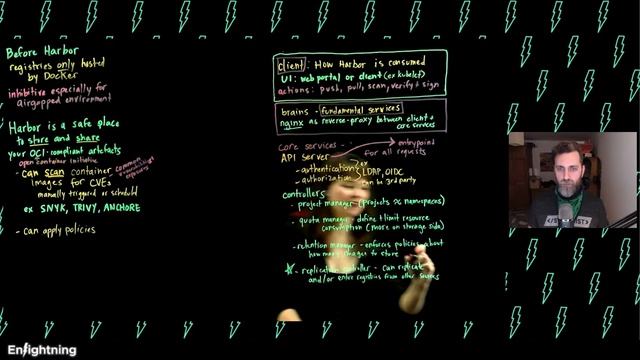 Before Harbor
registries only hosted
by Docker
inhibitive especially for
airgapped environment
Harbor is a safe place
to store and share
your OCI-compliant artefacts
open container initiative
- can scan container common vulnerabilities
images for CVEs
manually triggered or schedule
ex SNYK, TRIVY, ANCHORE
- can apply policies
client: How Harbor is consumed
UI: web portal or client (ex kubelet)
actions: push, pull, scan, verify + sign
brains - fundamental services
nginx as reverse-proxy between client +
core services
core services -
API server entrypoint
for all requests
- authentication ex
LDAP, OIDC
- authorization can be 3rd party
controllers
- project manager (projects namespaces)
- quota manager - define + limit resource
consumption (more on storage side)
- retention manager - enforces policies about
how many images to store
- replication controller - can replicate
and/or enter registries from other sources
Enlightning